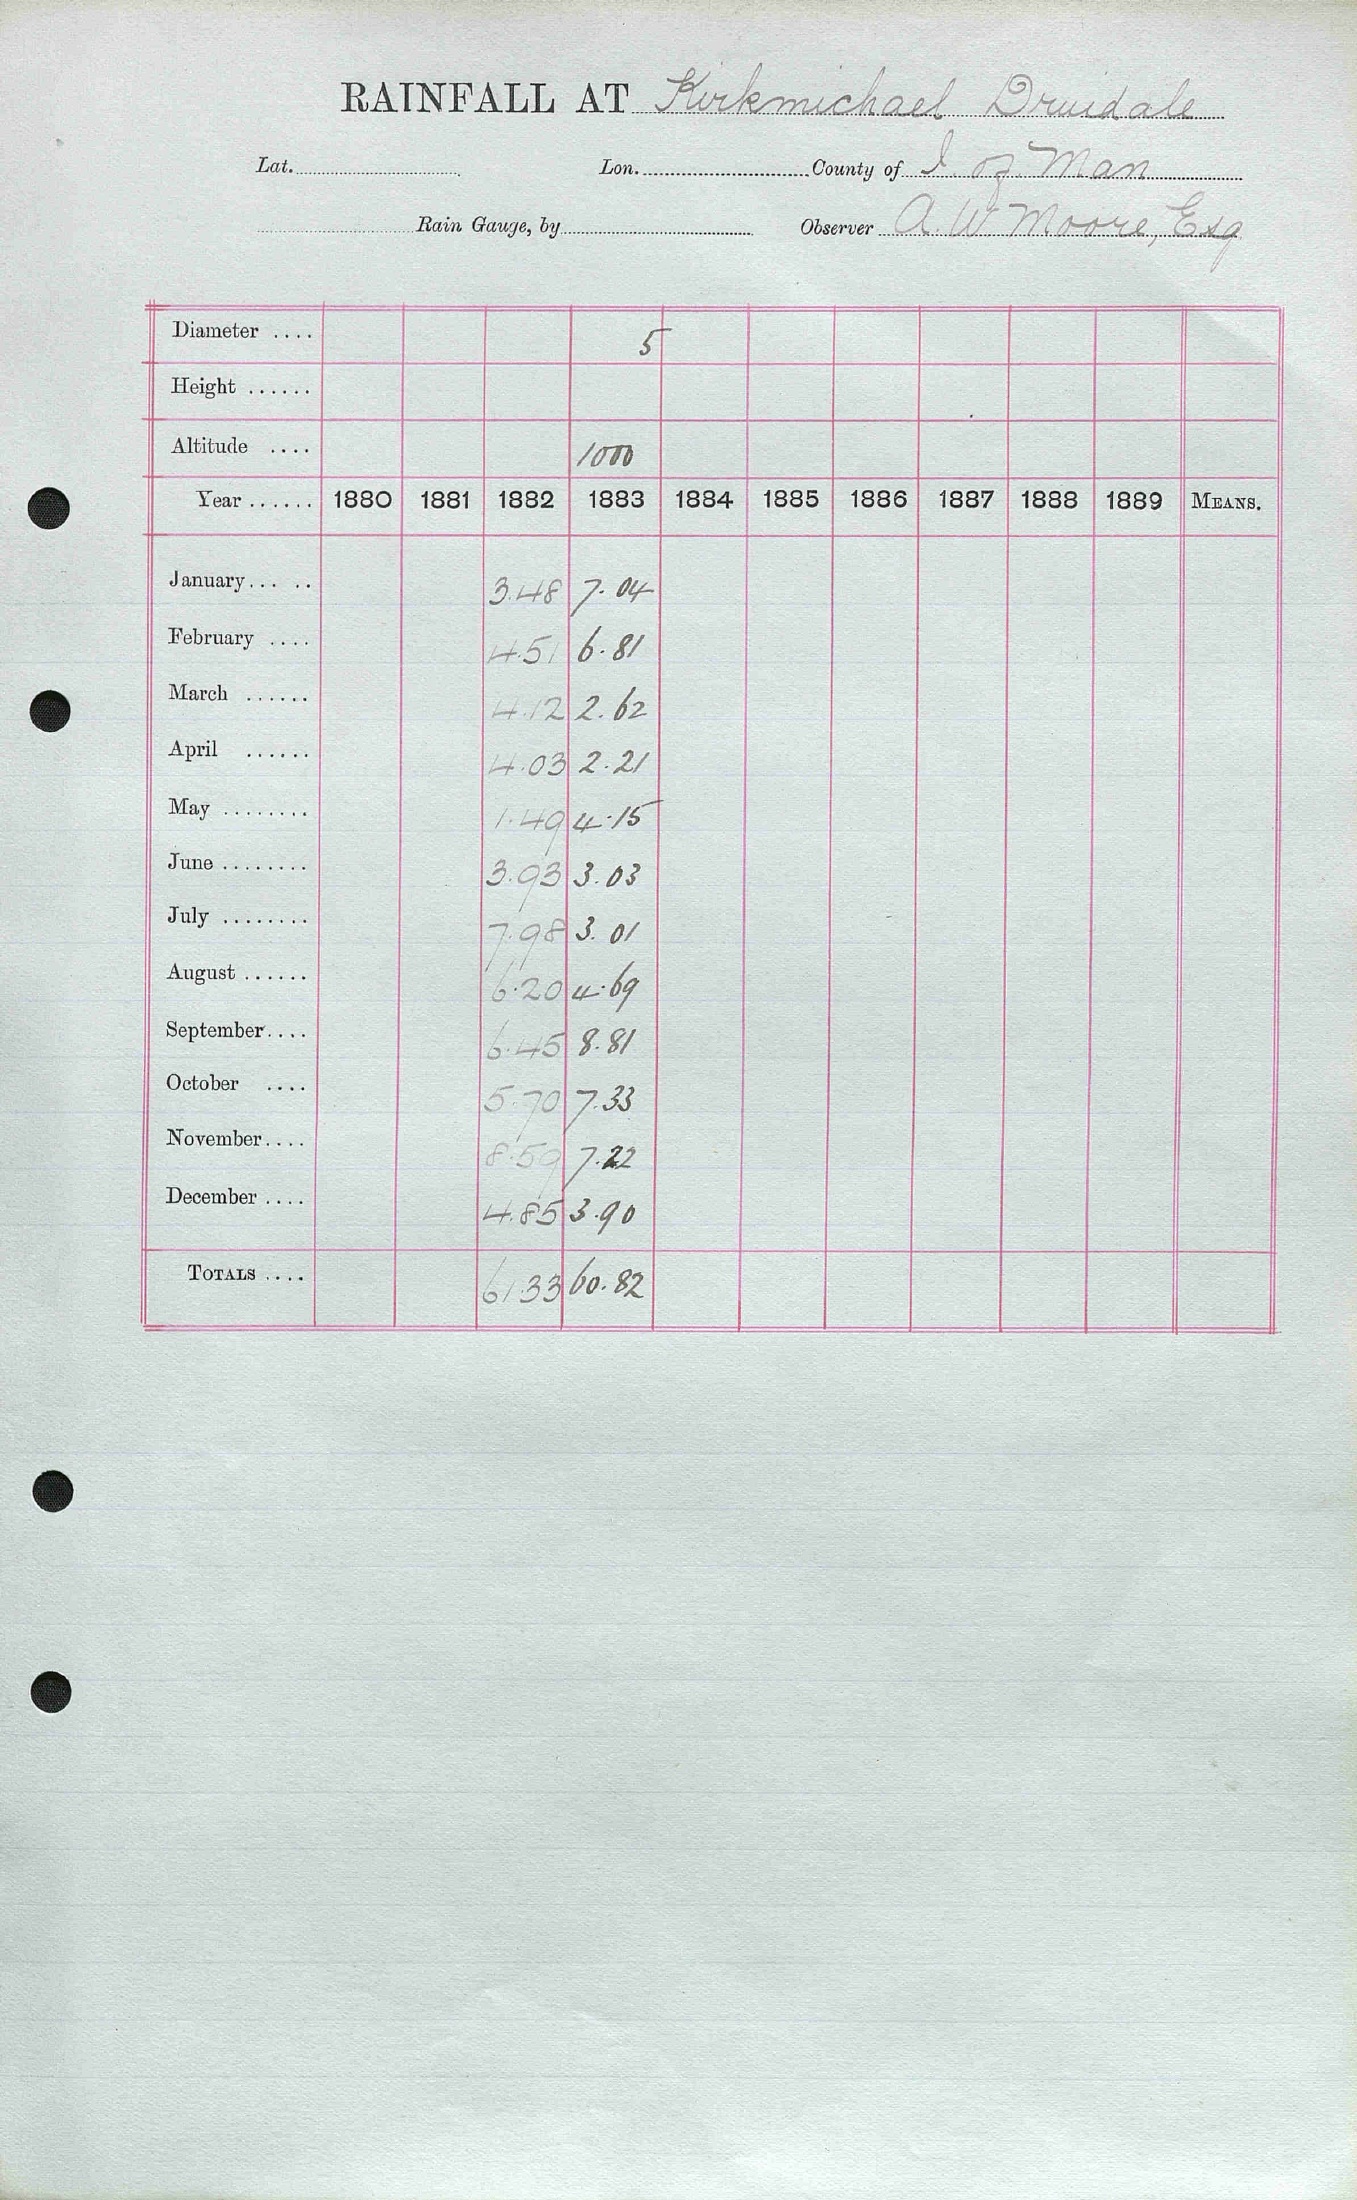 RAINFALL AT Kirkmichael Druidale
Lat. Lon. County of I. of Man
Rain Gauge, by Observer A. W Moore, Esq
Diameter .... 5
Height ......
Altitude .... 1000
Year ...... 1880 1881 1882 1883 1884 1885 1886 1887 1888 1889 MEANS.
January... .. 3.48 7.04
February .... 4.51 6.81
March ...... 4.12 2.62
April ...... 4.03 2.21
May ........ 1.49 4.15
June ........ 3.93 3.03
July ........ 7.98 3.01
August ...... 6.20 4.69
September.... 6.45 8.81
October .... 5.70 7.33
November.... 8.59 7.22
December .... 4.85 3.90
TOTALS .... 61.33 60.82